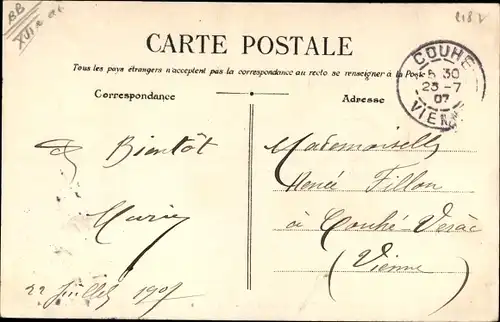 BB
218 V
CARTE POSTALE
Tous les pays étrangers n'acceptent pas la correspondance au recto se renseigner à la Poste
Correspondance
Adresse
COUHÉ
6 30
23 -7
07
VIENNE
à Bientôt
Marie
22 Juillet 1907
Mademoiselle
Renée Fillon
à Couhé-Verac
(Vienne)